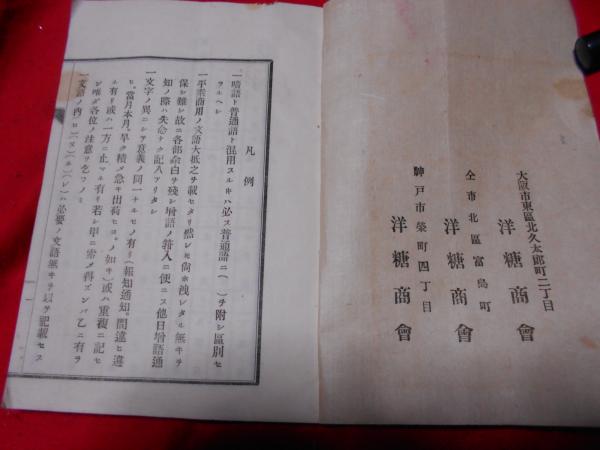 大阪市東區北久太郎町二丁目
洋糖商會
仝市北區富島町
洋糖商會
神戸市榮町四丁目
洋糖商會
凡例
一暗語ト普通語ト混用スルキハ必ス普通語ニ(一)ヲ附シ區別セ
ラルヘシ
一平素商用ノ文語大抵之ヲ載セタリ然レ𪜈尚ホ洩レタル無キヲ
保シ難シ故ニ各部余白ヲ殘シ增語ノ符入ニ便ニス他日增語通
知ノ際ハ失念ナク記入アリタシ
一文字ノ異ニシテ意義ノ同一ナルモノ有リ(報知通知。間違ヒ違
ヒ。當月本月。早ク積メ急キ出荷セヨ。ノ如キ)或ハ重複ニ記セ
ル有リ或ハ一方ニ止マル有リ若シ甲ニ索メ得ズンバ乙ニ有ラ
ン唯ダ各位ノ注意ヲ乞フノミ
一文語ノ內(ヒ)(ヌ)(ル)(レ)ハ必要ノ文語無キヲ以テ記載セス